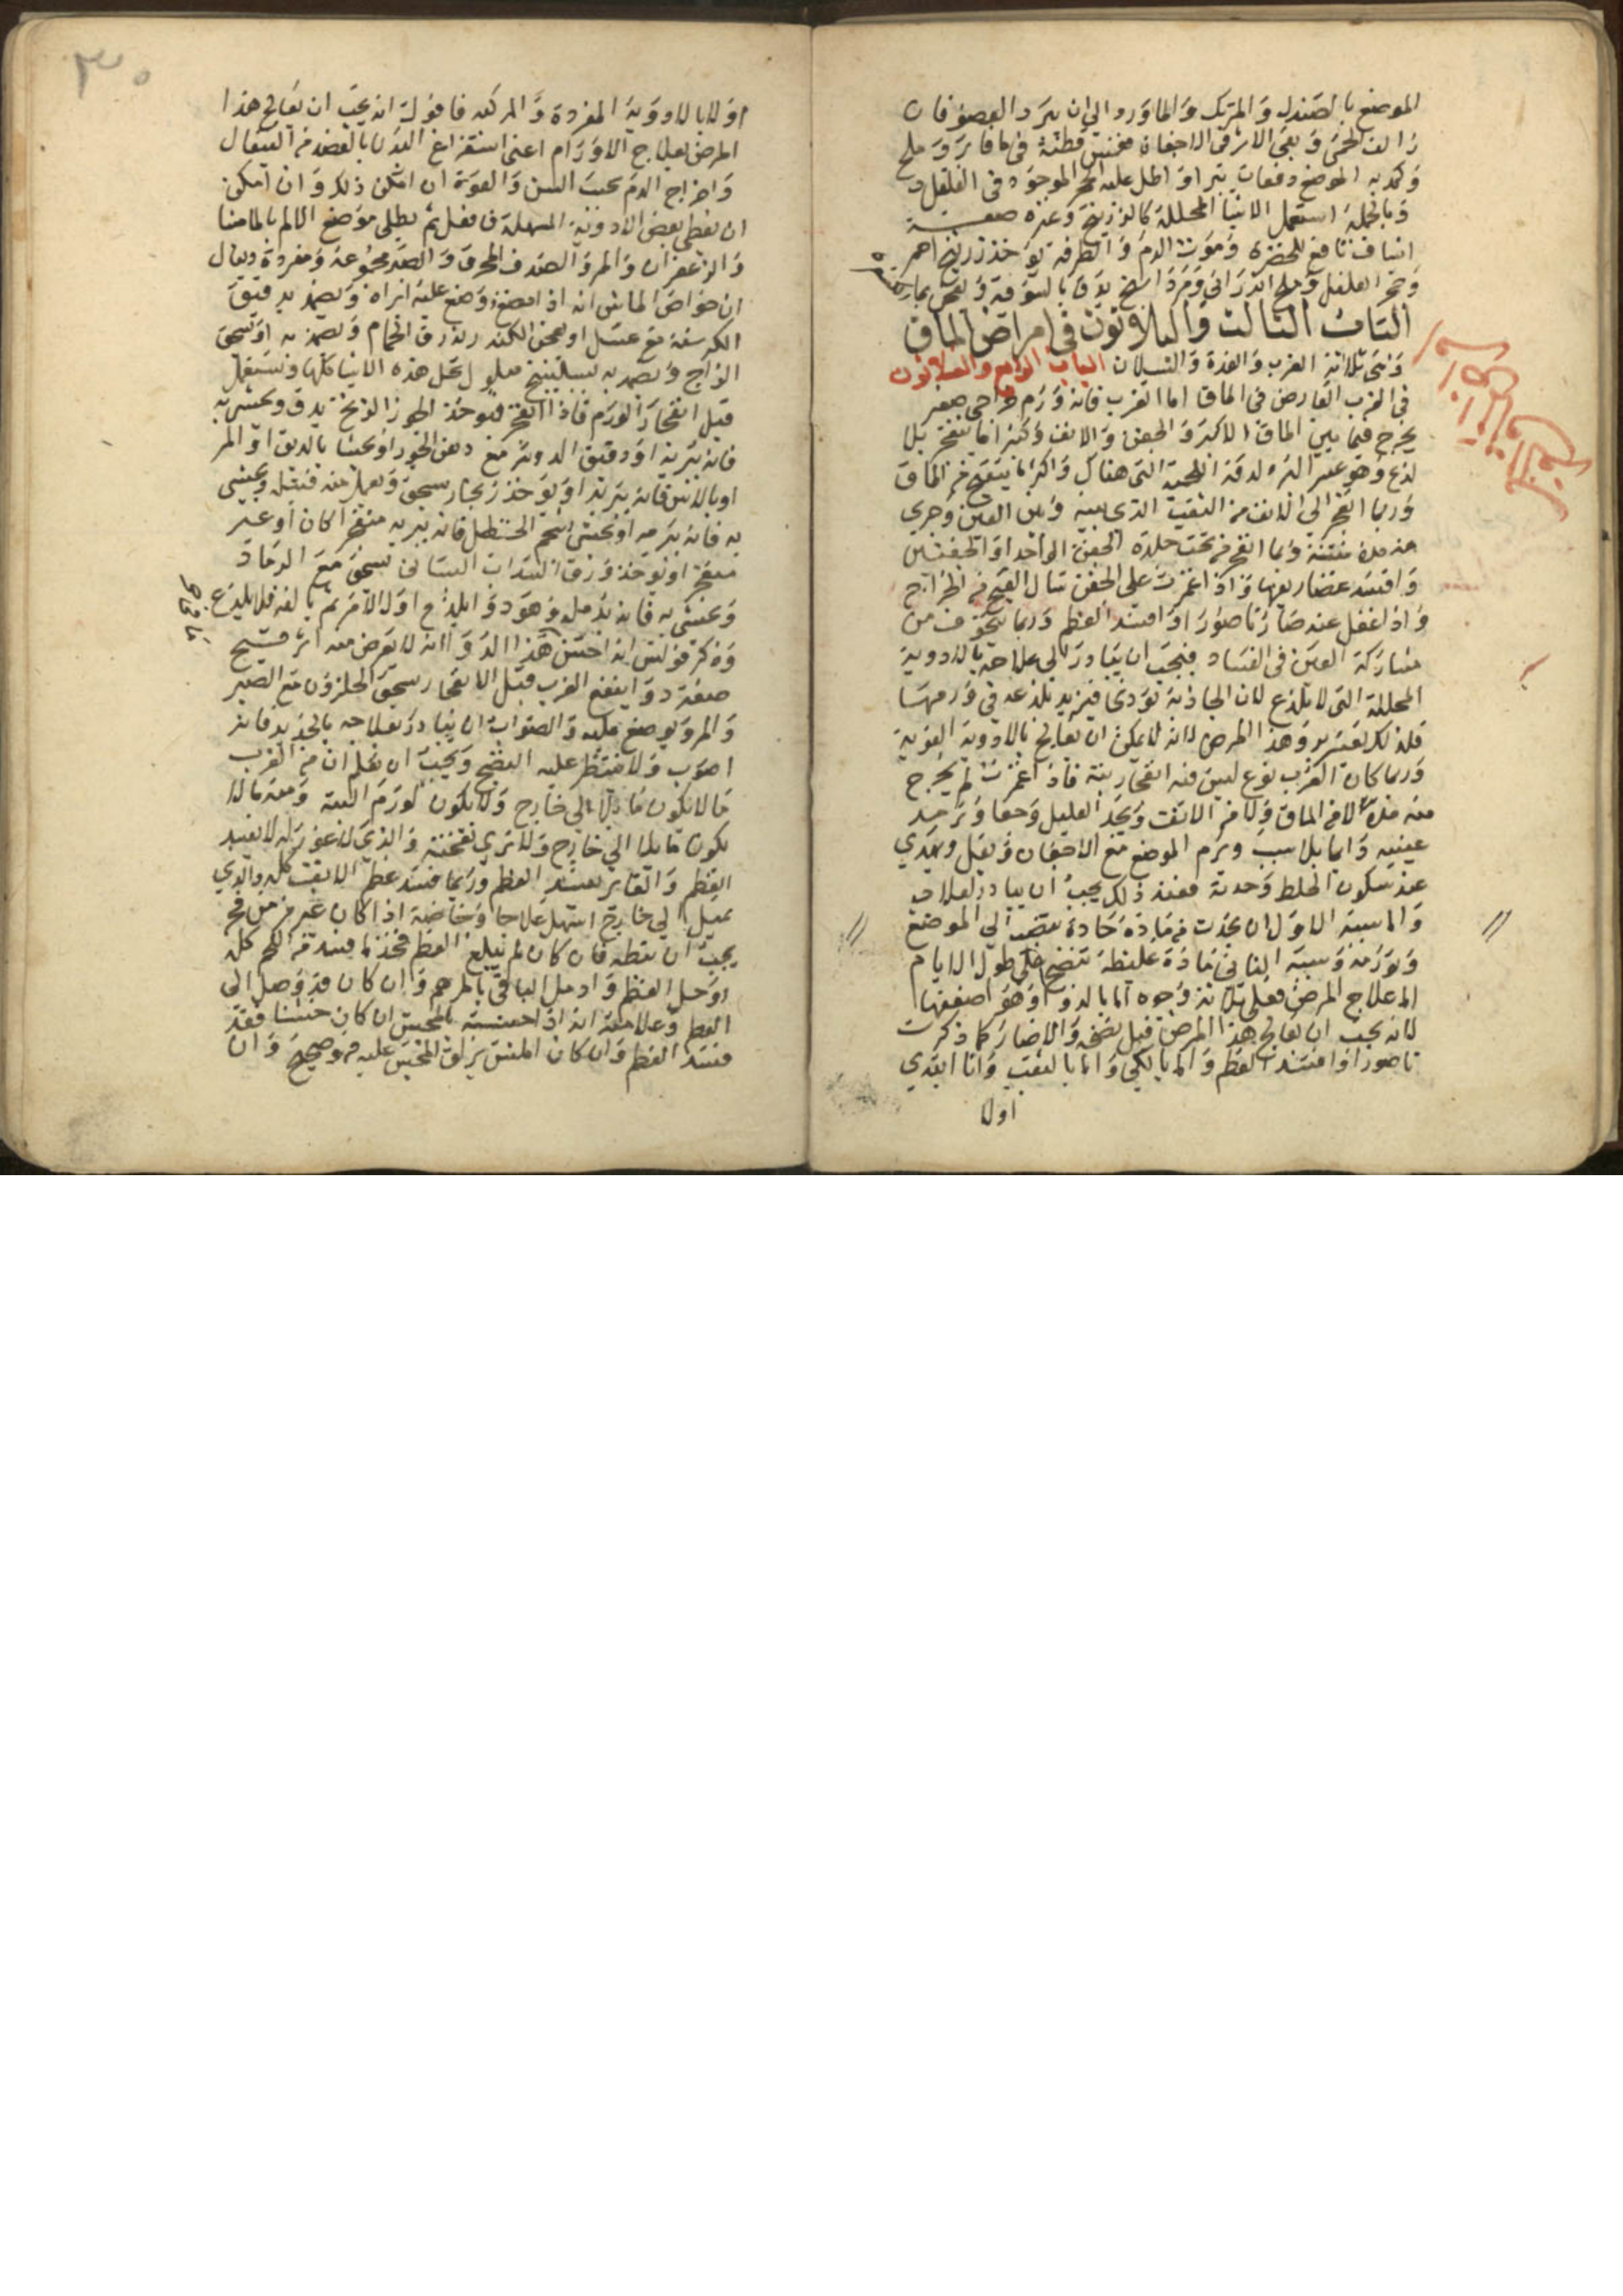 الموضع بالصندل والمرتك والماورد الى ان يبرد العضو فان
زالت الحمى وبقى الاثر فى الاجفان فغمس قطنة فى ما فاتر وملح
وكمد به الموضع دفعات تبرا او اطل عليه الحجر الموجود فى الفلفل
وبالجملة استعمل الاشيا المحللة كالزرنيخ وغيره صفة
اشياف نافع للخضرة وموت الدم والطرفة يوخذ زرنيخ احمر
وحجر الفلفل وملح اندرانى ومرداسنج يدق بالسوية ويعجن بما
الباب الثالث والثلاثون فى امراض الماق
وهى ثلاثة الغرب والغدة والسيلان الباب الرابع والثلاثون
فى الغرب العارض فى الماق اما الغرب فانه ورم خراجى صغير
يخرج فيما بين الماق الاكبر والجفن والانف وكثيرا ما ينفتح بلا
لذع وهو عسر البرء لدقة اللحمية التى هناك واكثر ما ينفتح من الماق
وربما انفجر الى الانف من الثقب الذى بينه وبين العين وجرى
منه مدة منتنة وربما انفجر من تحت جلدة الجفن الواحد او الجفنين
وافسد غضاريفها واذا غمزت على الجفن سال القيح من الخراج
واذا غفل عنه صار ناصورا او افسد العظم وربما تخوف من
مشاركة العين فى الفساد فيجب ان يبادر الى علاجه بالادوية
المحللة التى لا تلذع لان الجاذبة تؤدى فتزيد بلذعه فى ورمها
فلذلك يعسر برو هذا المرض لانه لا يمكن ان يعالج بالادوية القوية
وربما كان الغرب نوع ليس فيه انفجار بتة فاذا غمزت لم يخرج
منه مدة لا من الماق ولا من الانف ويجد العليل وجعا وترمد
عينيه دايما بلا سبب ويرم الموضع مع الاجفان ويقل ويهدى
عند سكون الخلط وحدته فعند ذلك يجب ان يبادر لعلاجه
واما سببه الاول ان يحدث من مادة حادة تنصب الى الموضع
وتورمه وسببه الثانى مادة غليظة تنضج على طول الايام
اما علاج المرض فعلى ثلاثة وجوه اما بالدوا وهو اضعفها
لانه يجب ان يعالج هذا المرض قبل نضجه والا صار كما ذكرت
ناصورا وافسد العظم واما بالكى واما بالثقب وانا ابتدى
اولا
٣٠
اولا بالادوية المفردة والمركبه فاقول انه يجب ان يعالج هذا
المرض بعلاج الاورام اعنى استفراغ البدن بالفصد من القيفال
واخراج الدم بحسب السن والقوة ان امكن ذلك وان امكن
ان يعطى بعض الادوية المسهلة فافعل ثم يطلى موضع الالم بالمامثا
والزعفران والمر والصدف المحرق والصبر مجموعة ومفردة ويقال
ان خواص الماش انه اذا مضغ ووضع عليه ابراه ويضمد بدقيق
الكرسنة مع عسل او يعجن الكندر بذرق الحمام ويضمد به او يسحق
الزاج ويضمد به بسكبينج محلول بخل هذه الاشيا كلها وتستعمل
قبل انفجار الورم فاذا انفجر فيوخذ الجوز الزنخ يدق ويحشى به
فانه يبريه او دقيق الدوشر مع دهن الجوز او يحشا بالدبق او المر
او بالاس فانه يبريه او يوخذ زنجار يسحق ويعمل منه فتيله ويحشى
به فانه يبريه او يحشى بشحم الحنظل فانه يبريه منفجرا كان او غير
منفجر او يوخذ ورق السداب البستانى يسحق مع الرماد
ويحشى به فانه يدمله وهو دوا يلذع اول الامر ثم يالفه فلا يلذع
وذكر فولس انه احسن هذا الدوا انه لا يعرض معه اثر قبيح
صفة دوا ينفع الغرب قبل الانفجار يسحق الحلزون مع الصبر
والمر ويوضع عليه والصواب ان يبادر بعلاجه بالحديد فانه
اصوب ولا ينتظر عليه النضج ويجب ان تعلم ان من الغرب
ما لا يكون مايلا الى خارج ولا يكون لورم البتة ومنه ما لا
يكون مايلا الى خارج ولا ترى نفخته والذى لا غور له لا يفسد
العظم والغاير يفسد العظم وربما فسد عظم الانف كله والذى
يميل الى خارج اسهل علاجا وخاصة اذا كان غير مزمن فح
يجب ان تبطه فان كان لم يبلغ العظم فخذ ما فسد من اللحم كله
او حل العظم وادمل الباقى بالمرهم وان كان قد وصل الى
العظم وعلامته انه اذا جسسته بالمجس ان كان خشنا فقد
فسد العظم وان كان املس يزلق المجس عليه فهو صحيح وان